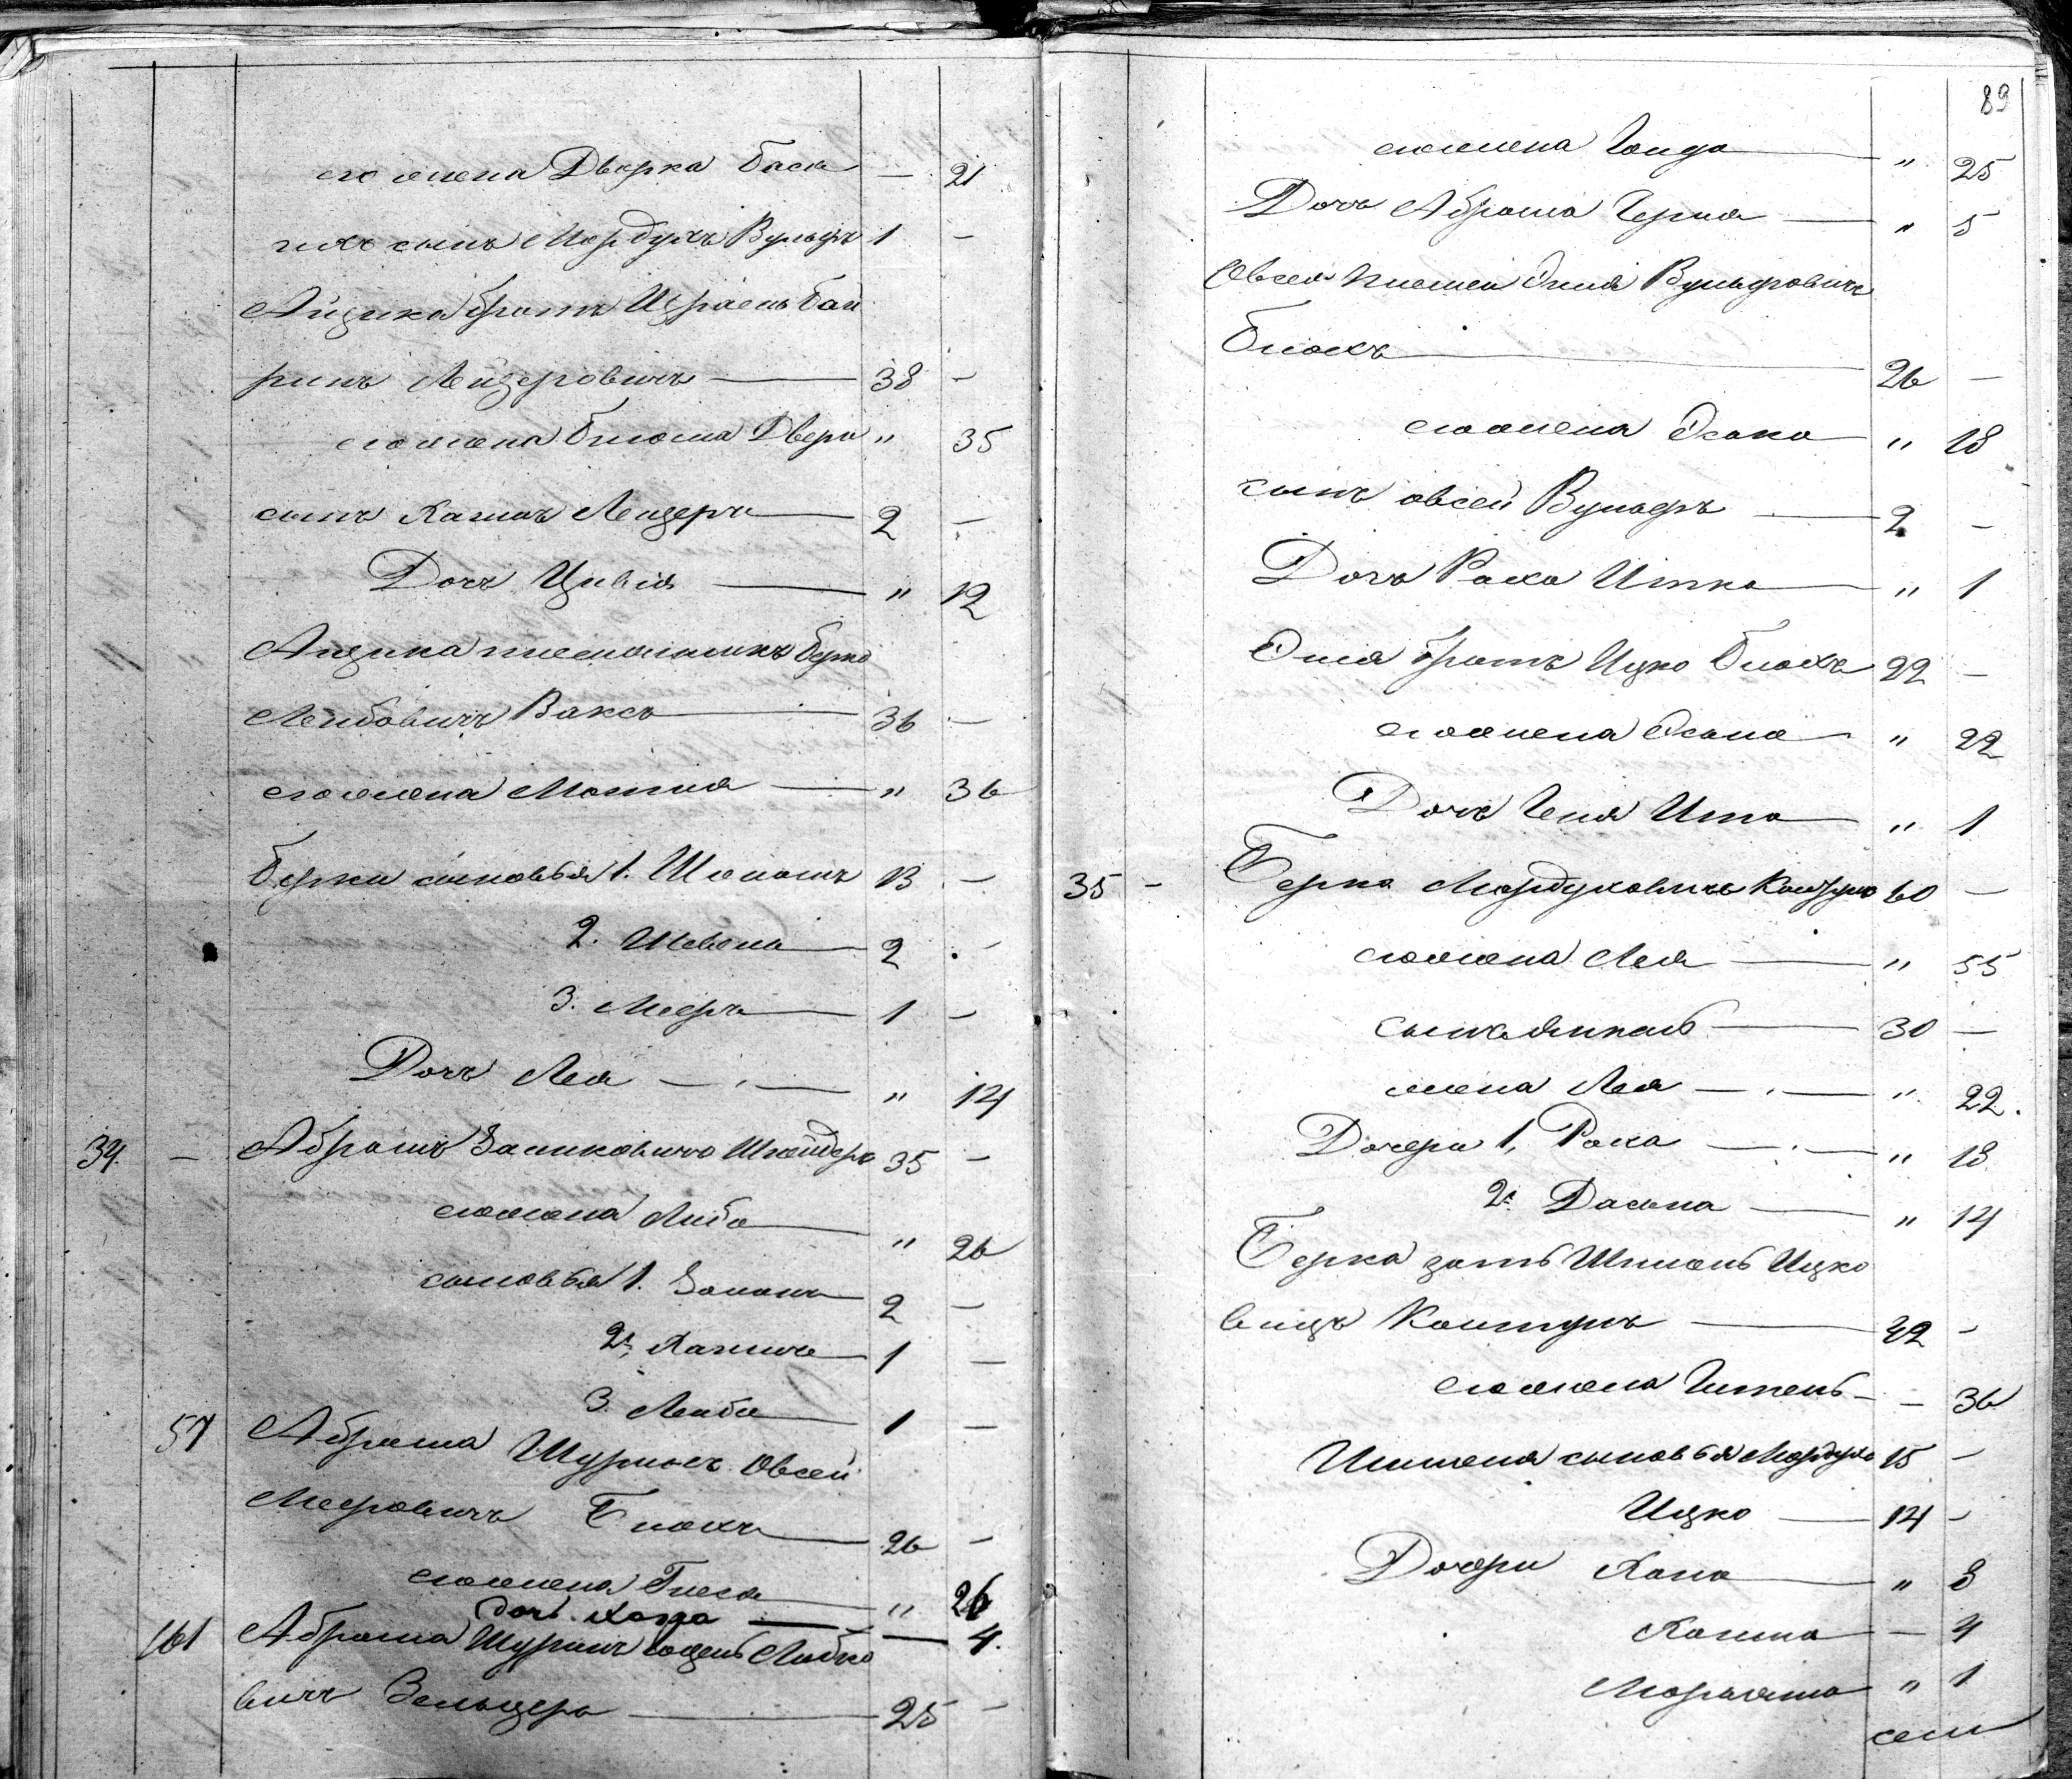 его жена Дверка Бася — 21
ихъ сынъ Мордухъ Вульфъ 1 —
Айзика братъ Израель Бай
ринъ Лейзеровичъ — 38 —
его жена Блюма Двера " 35
сынъ Хаимъ Лейзеръ — 2 —
Дочь Цивія — " 12
Айзика племянникъ Берко
Лейбовичъ Ваксъ — 36 —
его жена Матля — " 36
Берки сыновья 1. 13 —
2. Шевель — 2 -
3. Мееръ — 1 —
Дочь Лея — " 14
34. — Абрамъ Залмковичъ Шнейдеръ 35 —
его жена Либа — " 26
сыновья 1. Залманъ — 2 —
2. Хаимъ — 1 —
3. Лейба — 1 —
57 Абрама Шуринъ Овсей
Мееровичъ Блохъ — 26 —
его жена Гнеся — " 26
дочь — — 4.
161 Абрама Шуринъ Лейбко
вичъ Зельцеръ — 25 —
89
его жена Голда — " 25
Дочь Абрама Черна — " 5
Овсея племен Эля Вульфовичъ
Блохъ — 26 —
его жена — " 18
сынъ Овсей Вульфъ — 2 —
Дочь Раха Итка — " 1
Эля братъ Ицко Блохъ 22 —
его жена — " 22
Дочь Геня Ита — " 1
35 — Берко Мордуховичъ 60 —
его жена Лея — " 55
сынъ Янкель — 30 —
жена Лея — " 22.
Дочери 1. Раха — " 18
2. — " 14
Берка зять Шмлень Ицко
вичъ — 42 —
его жена Гитель — — 36
сыновья Мордухъ 15 —
Ицко — 14 —
Дочери Хана — " 8
— 4
— " 1
сем